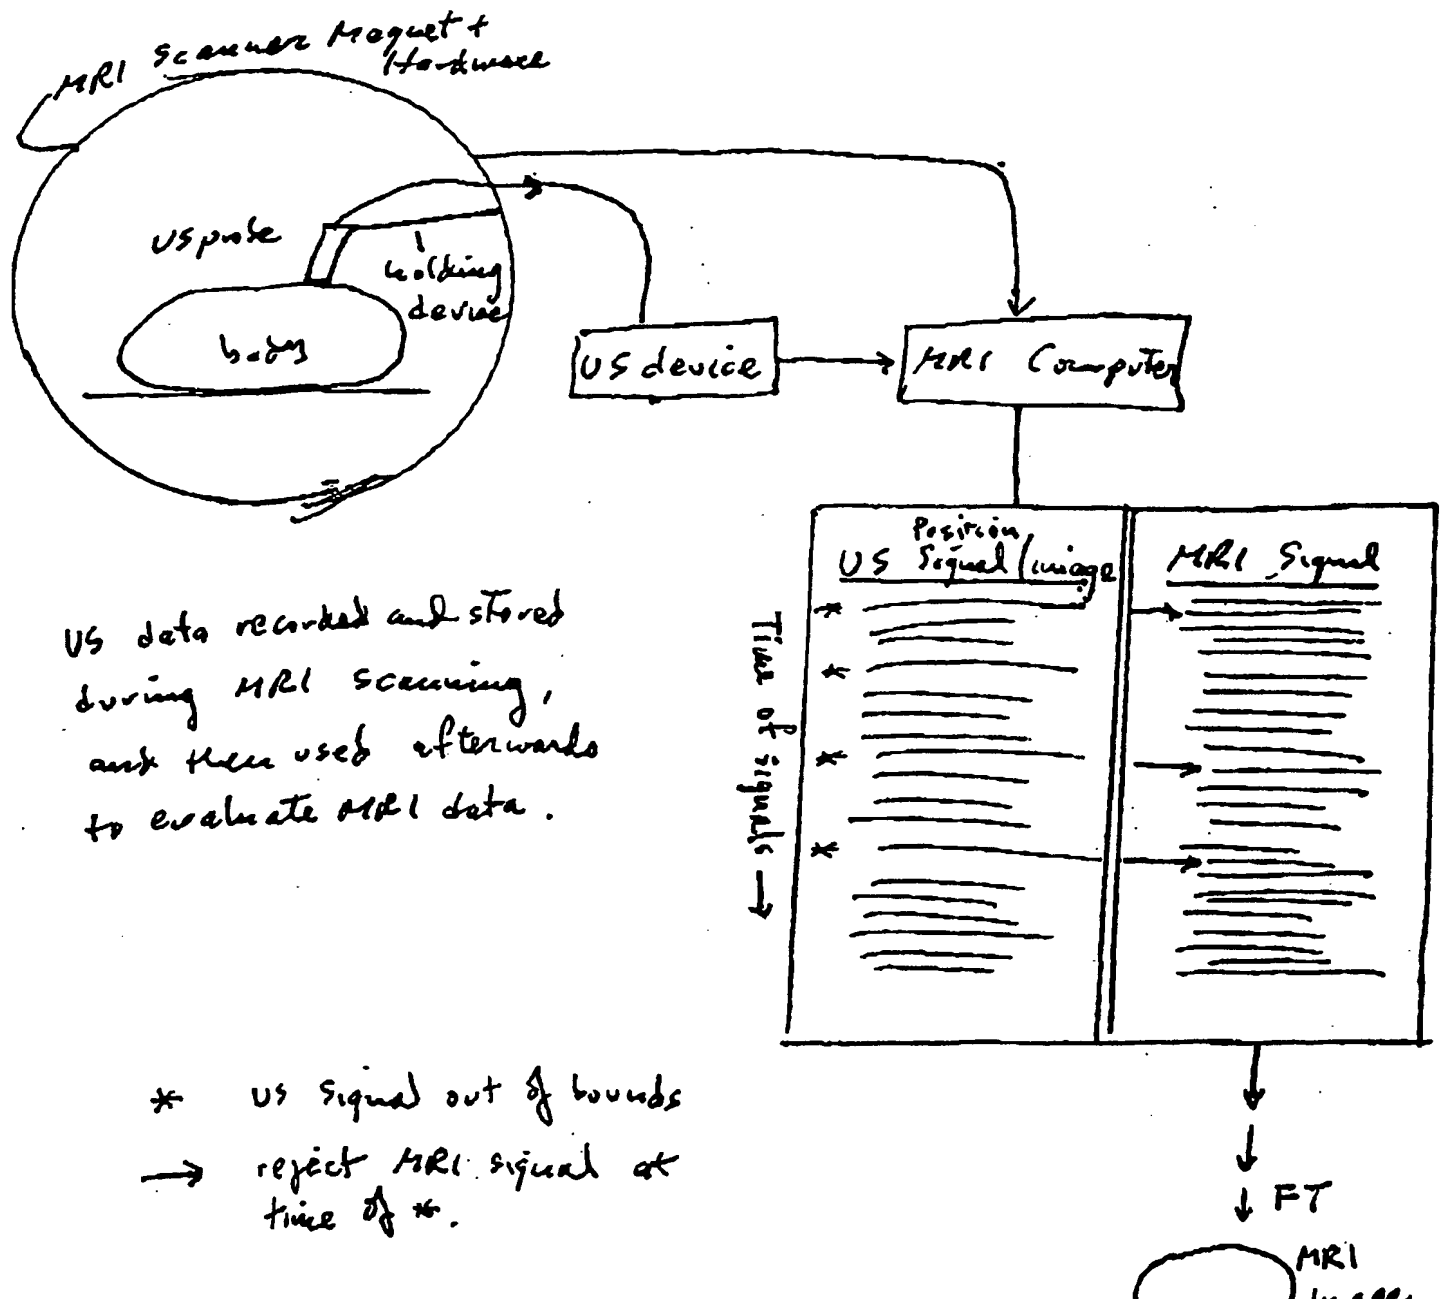 MRI Scanner Magnet +
Hardware
US probe
holding
device
body
US device
MRI Computer
Position,
US Signal/image
MRI Signal
Time of signals →
*
*
*
*
US data recorded and stored
during MRI scanning,
and then used afterwards
to evaluate MRI data.
* US signal out of bounds
→ reject MRI signal at
time of *.
FT
MRI